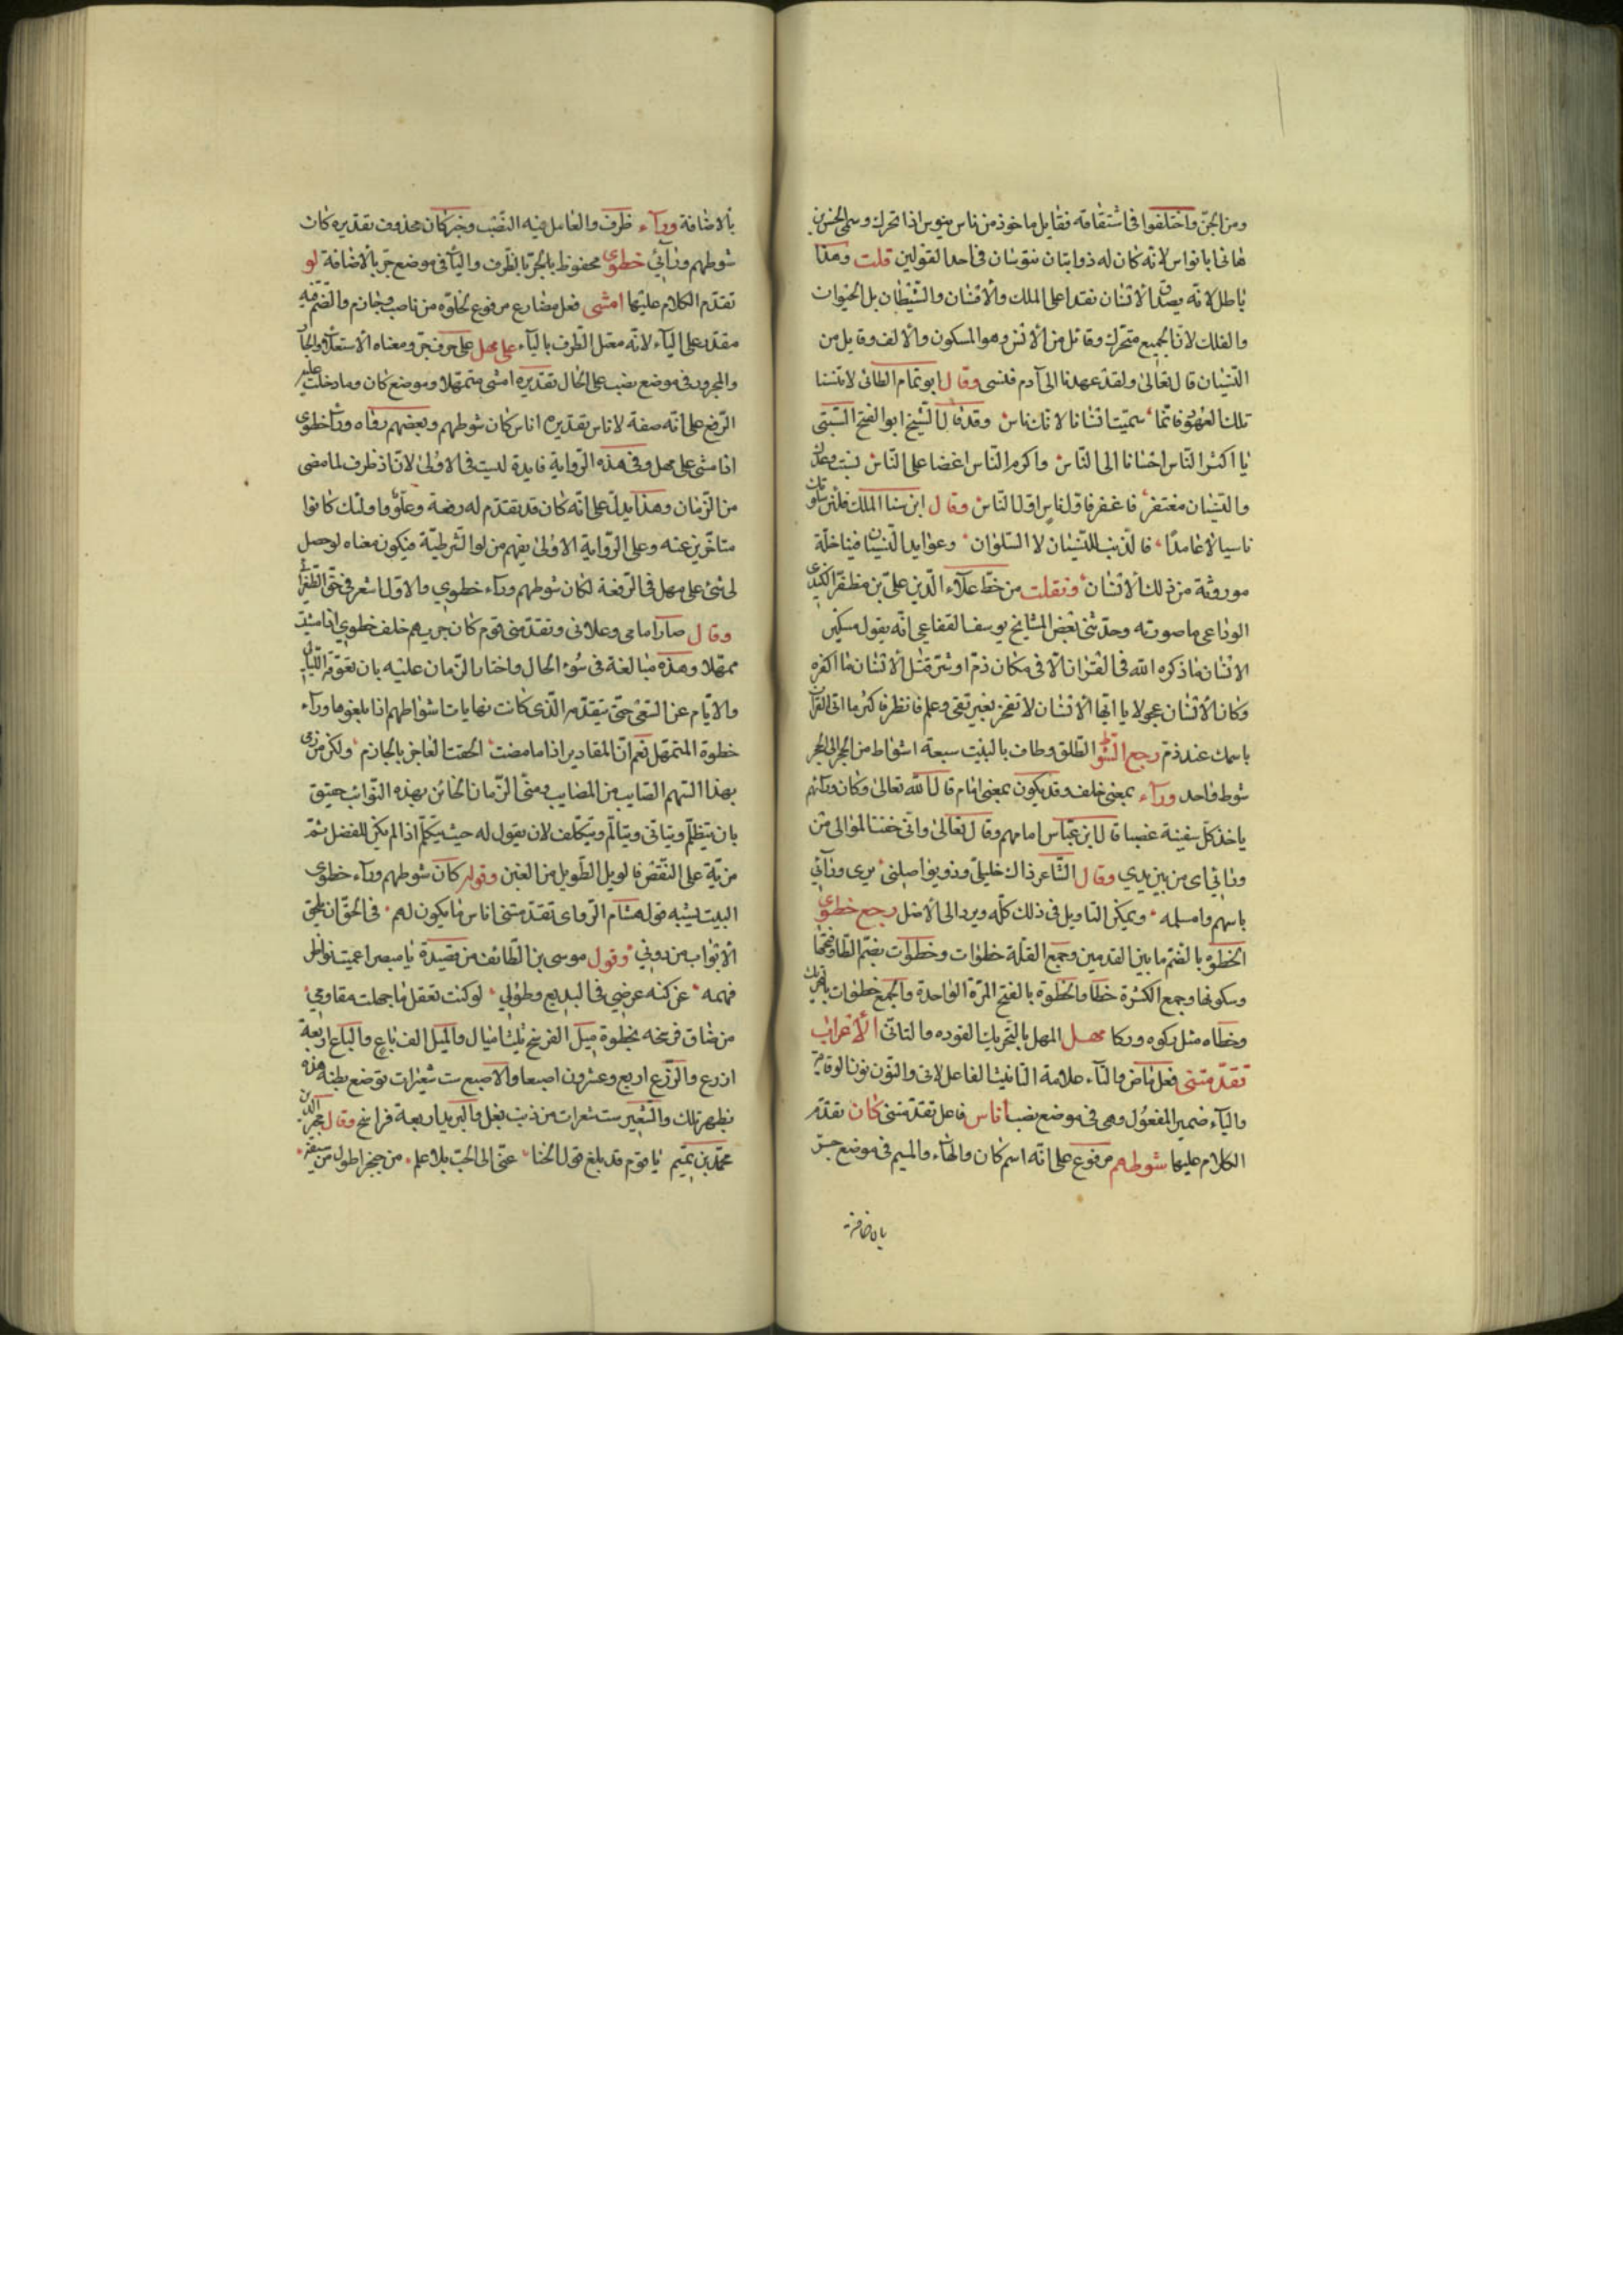 ومن الجن واختلفوا في اشتقاقه فقايل ماخوذ من ناس ينوس اذا تحرك وسمى الحسن بن
هانى ابا نواس لانه كان له ذوابتان تنوسان فى احد القولين قلت وهذا
باطل لانه يصدق الانسان نقدا على الملك والانسان والشيطان بل الحيوان
والفلك لان الجميع متحرك وقائل من الانس وهو السكون والالف وقايل من
النسيان قال تعالى ولقد عهدنا الى آدم فنسى وقال ابو تمام الطائى لا تنسنا
تلك العهود فانما سميت انسانا لانك ناس وقد قال الشيخ ابو الفتح البستى
يا اكثر الناس احسانا الى الناس واكرم الناس اغضا على الناس نسيت وعدك
والنسيان مغتفر فاغفر فاول ناس اول الناس وقال ابن سنا الملك
ناسيا لا عامدا فالذنب للنسيان لا السلوان وعوايد النسيان فينا خلة
موروثة من ذلك الانسان ونقلت من خط علاء الدين على بن مظفر الكندى
الوداعى ما صورته وحدثنى بعض المشايخ يوسف القفاعى انه يقول مسكين
الانسان ما ذكره الله فى القران الا فى مكان ذم او شر قتل الانسان ما اكفره
وكان الانسان عجولا يا ايها الانسان لا تفخر بغير تقى وعلم فانظر فاكثر ما اتى القران
باسمك عند ذم رجع الشوط الطلق وطاف بالبيت سبعة اشواط من الحجر الى الحجر
شوط واحد وراء بمعنى خلف وقد يكون بمعنى امام قال الله تعالى وكان وراءهم
ياخذ كل سفينة غصبا قال ابن عباس امامهم وقال تعالى وانى خفت الموالى من
ورائى اى من بين يدي وقال الشاعر ذاك خليلى وذو يواصلنى يرمى ورائي
باسهم وامسلمه ويمكن التاويل فى ذلك كله ويرد الى الاصل رجع خطوي
الخطوة بالضم ما بين القدمين وجمع القلة خطوات وخطوات بضم الطا وفتحها
وسكونها وجمع الكثرة خطا والخطوة بالفتح المرة الواحدة والجمع خطوات بالتحريك
وخطاه مثل ركوه وركا مهل المهل بالتحريك القوده والتانى الاعراب
تقدمتنى فعل ماض والتاء علامة التانيث الفاعل لانى والنون نون الوقاية
والياء ضمير المفعول وهى فى موضع نصب اناس فاعل تقدمتنى كان تقدم
الكلام عليها شوطهم مرفوع على انه اسم كان والهاء والميم فى موضع جر
بالاضافة
بالاضافة وراء ظرف والعامل فيه النصب وخبر كان محذوف تقديره كان
شوطهم ورائي خطوي محفوظ بالجر بالظرف واليا فى موضع جر بالاضافة لو
تقدم الكلام عليها امشى فعل مضارع مرفوع لخلوه من ناصب وجازم والضم فيه
مقدر على الياء لانه معتل الطرف بالياء على مهل على حرف جر ومعناه الاستعلا والجار
والمجرور فى موضع نصب على الحال تقديره امشى متمهلا وموضع كان وما دخلت عليه
الرفع على انه صفة لاناس تقديره اناس كان شوطهم وبعضهم رواه وراء خطوي
اذ امشى على مهل وفى هذه الرواية فايدة ليست فى الاولى لان اذ ظرف لما مضى
من الزمان وهذا يدل على انه كان قد تقدم له رفعة وعلو واولئك كانوا
متاخرين عنه وعلى الرواية الاولى يفهم من لو الشرطية فيكون معناه لو حصل
لى مشى على مهل فى الرفعة لكان شوطهم وراء خطوي والاول اشعر فى حق الطغرائى
وقال صار امامى وعلانى وتقدمنى قوم كان جريهم خلف خطوي اذا مشيت
ممهلا وهذه مبالغة فى سوء الحال واختار الزمان عليه بان تعوقه الليالى
والايام عن السعى حتى يتقدمه الذى كانت نهايات اشواطهم اذا بلغوها وراء
خطوة المتمهل نعم ان المقادير اذا ما مضت الحقت العاجز بالحازم ولكن من رمى
بهذا السهم الصايب من المصايب ومنى الزمان الخائن بهذه النوائب حقيق
بان يتظلم ويتانى ويتالم ويتكلف لان يقول له حيث يتكلم اذا لم يكن للفضل ثم
مزية على النقص فالويل الطويل من الغبن وقوله كان شوطهم وراء خطوي
البيت يشبه قول هشام الرواى تقدمتنى اناس ما يكون لهم فى الحق ان يلحق
الابواب من دوني وقول موسى بن الطائف من قصيدة يا مبصرا عميت نواظر
فهمه عن كنه عرضي فى البديع وطولي لو كنت تعقل ما جهلت مقاومي
من ضاق فرسخه بخطوة ميل الفرسخ ثلث اميال والميل الف باع والباع اربعة
اذرع والذرع اربع وعشرون اصبعا والاصبع ست شعيرات توضع بطن هذه
بظهر تلك والشعير ست شعرات من ذنب بغل والبريد اربعة فراسخ وقال مجير الدين
محمد بن تميم يا قوم قد بلغ قول الخنا عنى الى الحب بلا علم من خنجر اطول من سيفه